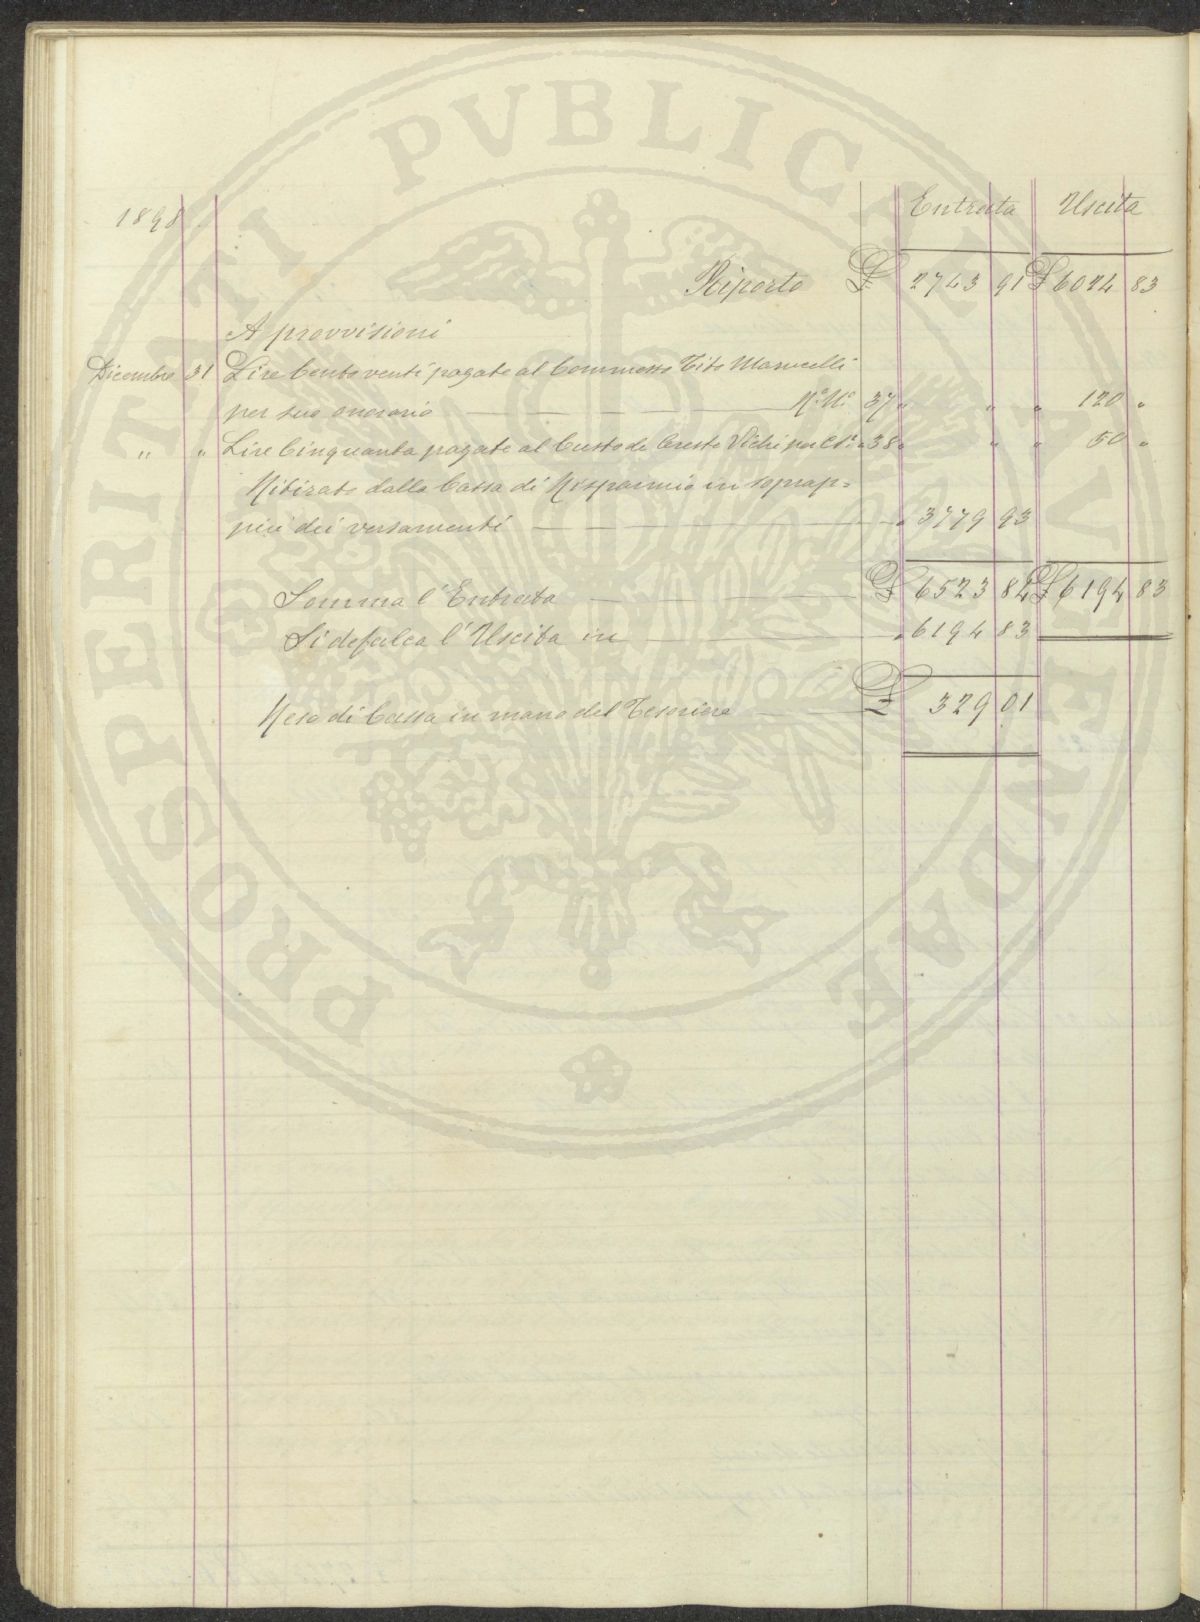 PROSPERITATI PVBLICAE AVGENDAE
1898 Entrata Uscita
Riporto £ 2743 91 £ 6024 83
A provvisioni
Dicembre 31 Lire Cento venti pagate al Commesso Tito Marucelli
per suo onorario N.° N.° 37 " " " 120 "
" " Lire Cinquanta pagate al Custode Oreste Vichi per C.S. " 38 " " " 50 "
Ritirate dalla Cassa di Risparmio in soprap=
più dei versamenti " 3779 93
Somma l'Entrata £ 6523 84 £ 6194 83
Si defalca l'Uscita in " 6194 83
Resto di Cassa in mano del Tesoriere £ 329 01